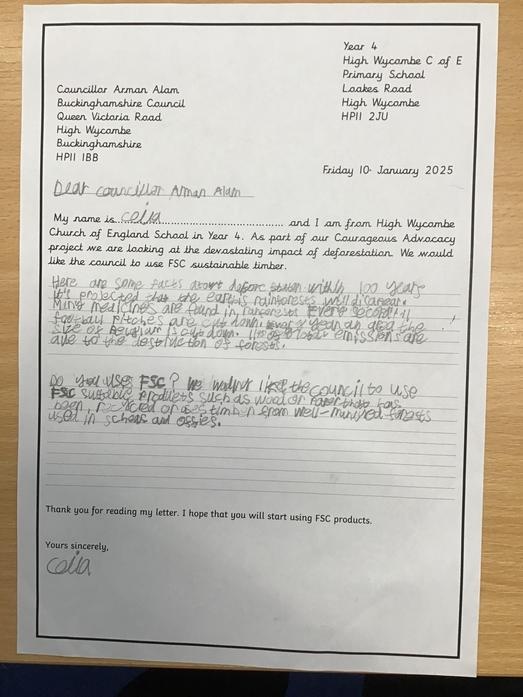 Year 4
High Wycombe C of E
Primary School
Loakes Road
High Wycombe
HP11 2JU
Councillor Arman Alam
Buckinghamshire Council
Queen Victoria Road
High Wycombe
Buckinghamshire
HP11 1BB
Friday 10th January 2025
Dear councillor Arman Alam
My name is celia and I am from High Wycombe
Church of England School in Year 4. As part of our Courageous Advocacy
project we are looking at the devastating impact of deforestation. We would
like the council to use FSC sustainable timber.
Here are some facts about within 100 years
It's projected that the earth's rainforests will
medicines are found in rainforests Every second
football pitches are cut down. every year an area the
size of is cut down. of emissions are
due to the destruction of forests.
Do you uses FSC? We the council to use
FSC products such as wood or paper that has
been recycled or uses timber from well-
used in and
Thank you for reading my letter. I hope that you will start using FSC products.
Yours sincerely,
celia